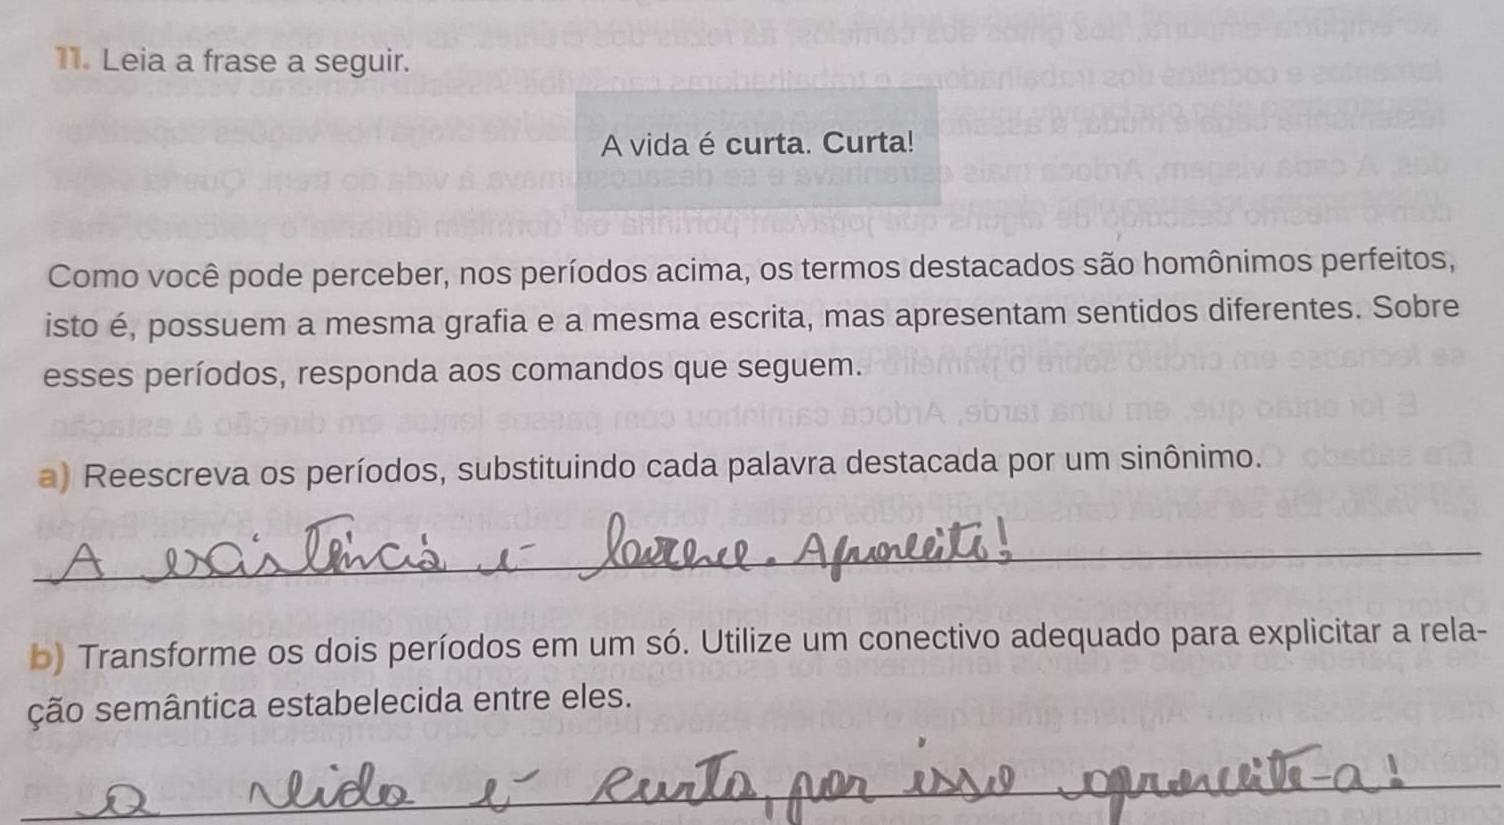 11. Leia a frase a seguir.
A vida é curta. Curta!
Como você pode perceber, nos períodos acima, os termos destacados são homônimos perfeitos,
isto é, possuem a mesma grafia e a mesma escrita, mas apresentam sentidos diferentes. Sobre
esses períodos, responda aos comandos que seguem.
a) Reescreva os períodos, substituindo cada palavra destacada por um sinônimo.
A existência é breve. Aproveite!
b) Transforme os dois períodos em um só. Utilize um conectivo adequado para explicitar a rela-
ção semântica estabelecida entre eles.
a vida é curta, por isso aproveite-a!